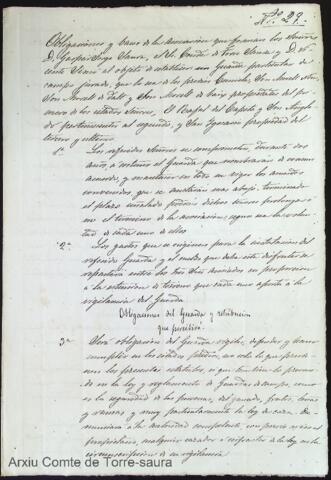 Nº. 29.
Obligaciones y bases de la asociacion que forman los Señores
D. Gaspar Jorge Saura, el Sr. Conde de Torre Saura y D. Vi-
cente Vives al objeto de establecer un Guarda particular de
campo jurado, que lo sea de los predios
Son Morell de Dalt y Son Morell de Baix propiedades del pri-
mero de los citados Señores, El
pertenecientes al segundo, y San Ignacio propiedad del
tercero y ultimo
1ª. Los referidos Señores se comprometen, durante dos
años, a sostener el Guarda que nombrarán de comun
acuerdo, y mantener en todo su vigor los acuerdos
convenidos que se anotarán mas abajo; terminado
el plazo señalado podrán dichos Señores prolongar ó
no el termino de la asociacion segun sea la volun-
tad de cada uno de ellos
2ª. Los gastos que se originen para la instalacion del
referido Guarda y el sueldo que deba este disfrutar se
repartirá entre los tres Sres. Asociados en proporcion
a la estension de terreno que cada uno aporte a la
vigilancia del Guarda
Obligaciones del Guarda y retribucion
que percibirá
3ª. Será obligacion del Guarda vigilar, defender y hacer
cumplir en los citados predios, no solo lo que previe-
nen los presentes estatutos, si que tambien lo preveni-
do en la ley y reglamento de Guardas de campo, como
es la seguridad de las personas, del ganado, frutos, leñas
y ramas y muy particularmente la ley de caza. De-
nunciará a la autoridad competente, con previo aviso al
propietario, cualquier cazador ó infractor de la ley en la
circunscripcion de su vigilancia.
Arxiu Comte de Torre-saura